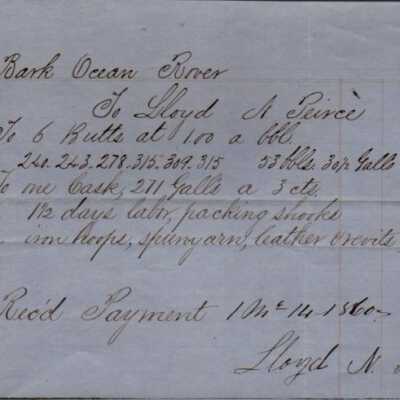 Bark Ocean Rover
To Lloyd N Peirce
To 6 Butts at 1.00 a bbl.
240. 243. 278. 315. 309. 315 53 bbls. 30½ Galls
To one Cask, 271 Galls a 3 cts.
1½ days labor, packing shooks
iron hoops, spunyarn, leather &
Rec'd Payment 14 1860
Lloyd N.